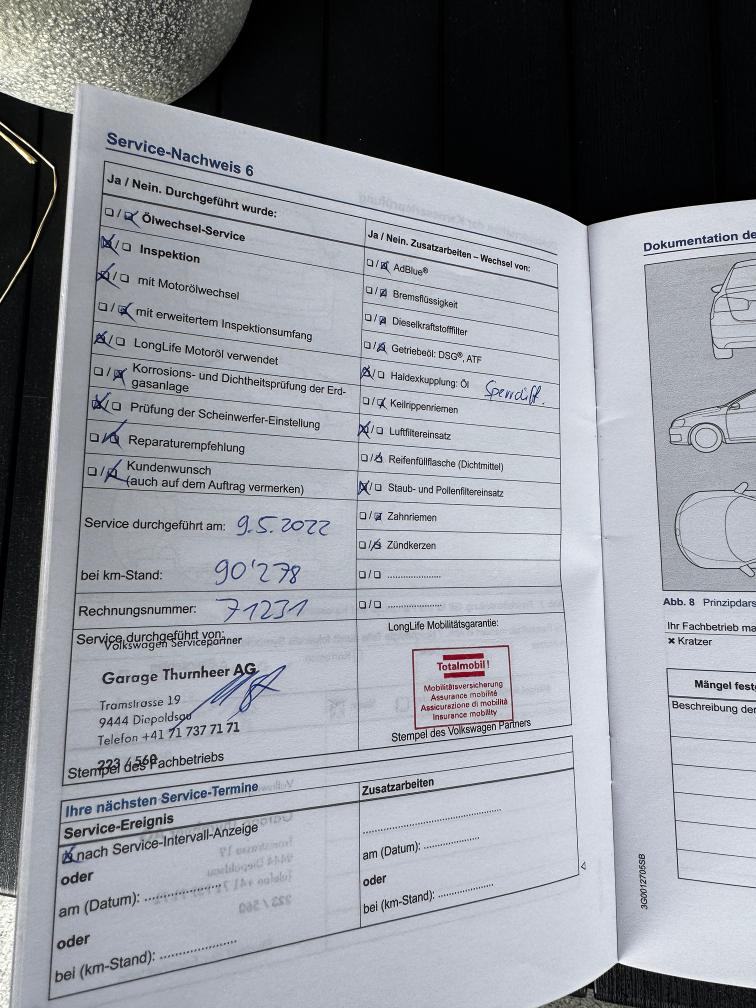 Service-Nachweis 6
Ja / Nein. Durchgeführt wurde:
Ölwechsel-Service
Inspektion
mit Motorölwechsel
mit erweitertem Inspektionsumfang
LongLife Motoröl verwendet
Korrosions- und Dichtheitsprüfung der Erd-
gasanlage
Prüfung der Scheinwerfer-Einstellung
Reparaturempfehlung
Kundenwunsch
(auch auf dem Auftrag vermerken)
Service durchgeführt am: 9.5.2022
bei km-Stand: 90'278
Rechnungsnummer: 71231
Service durchgeführt von:
Volkswagen Servicepartner
Garage Thurnheer AG
Tramstrasse 19
9444 Diepoldsau
Telefon +41 71 737 71 71
223 / 560
Stempel des Fachbetriebs
Ja / Nein. Zusatzarbeiten – Wechsel von:
AdBlue®
Bremsflüssigkeit
Dieselkraftstofffilter
Getriebeöl: DSG®, ATF
Haldexkupplung: Öl Sperrdiff.
Keilrippenriemen
Luftfiltereinsatz
Reifenfüllflasche (Dichtmittel)
Staub- und Pollenfiltereinsatz
Zahnriemen
Zündkerzen
LongLife Mobilitätsgarantie:
Totalmobil!
Mobilitätsversicherung
Assurance mobilité
Assicurazione di mobilità
Insurance mobility
Stempel des Volkswagen Partners
Ihre nächsten Service-Termine
Service-Ereignis
nach Service-Intervall-Anzeige
oder
am (Datum):
oder
bei (km-Stand):
Zusatzarbeiten
am (Datum):
oder
bei (km-Stand):
3G0012705SB
Dokumentation de
Abb. 8 Prinzipdars
Ihr Fachbetrieb ma
× Kratzer
Mängel fest
Beschreibung der